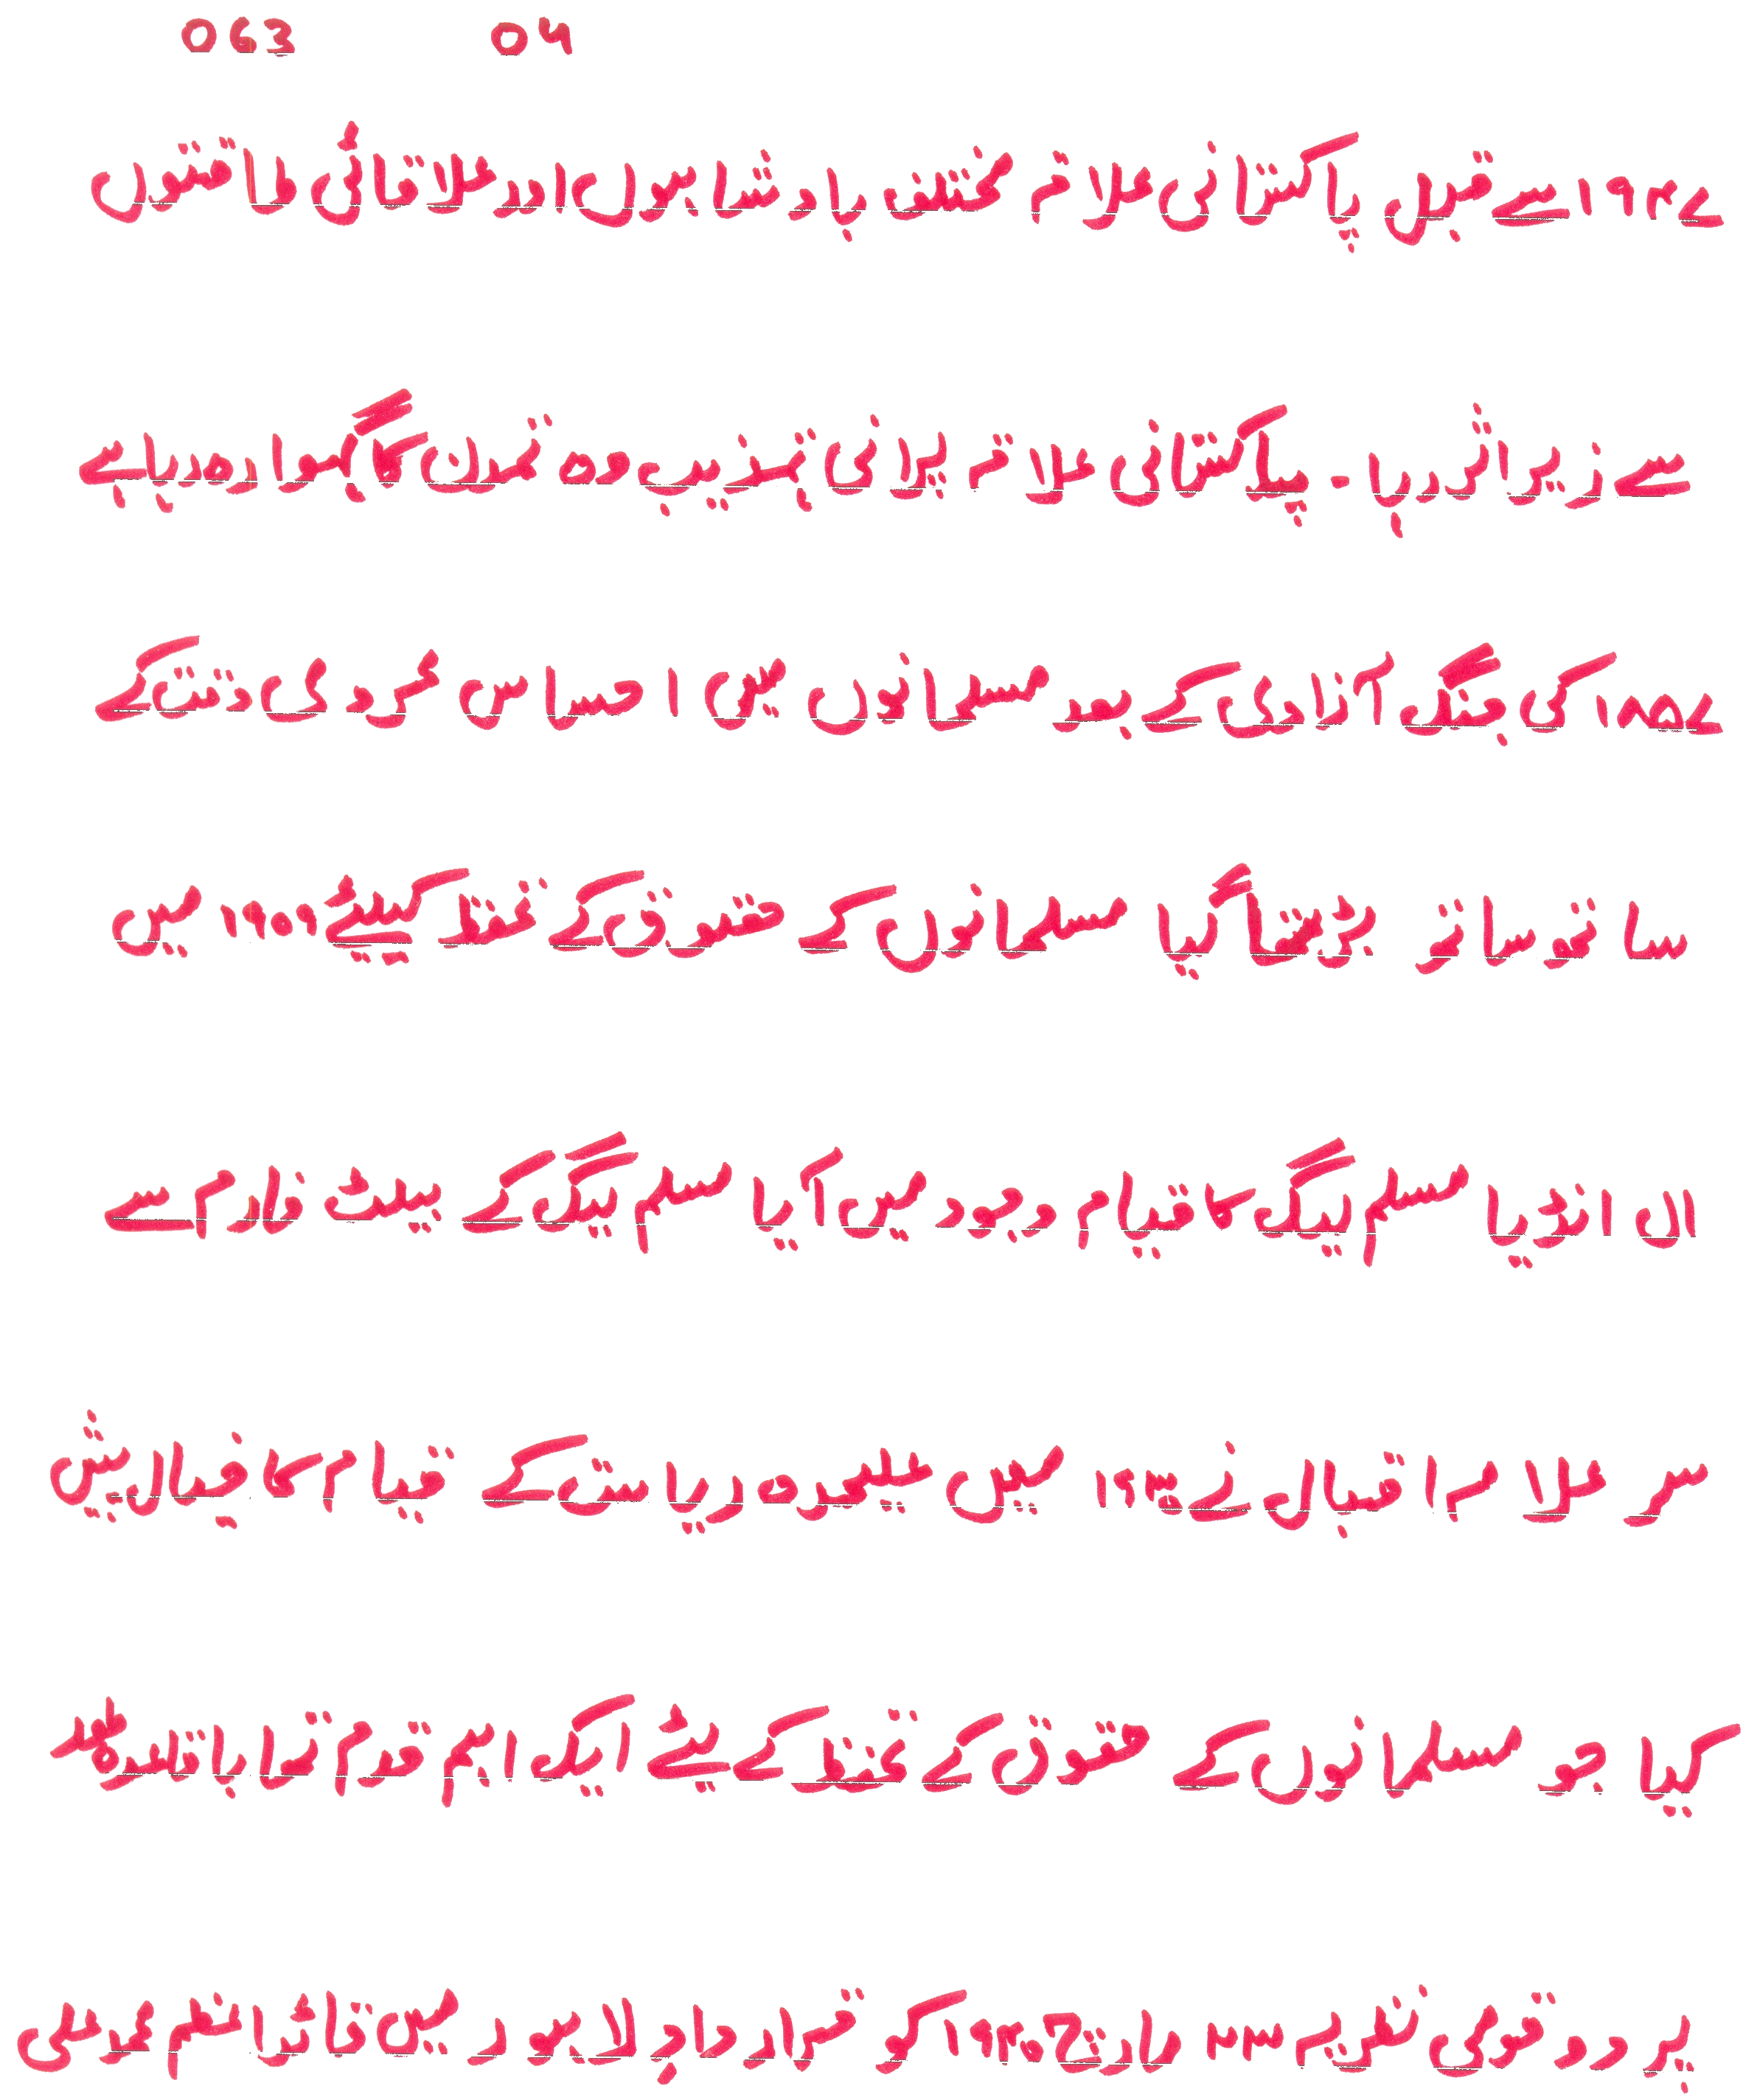 063 04
۱۹۴۷ سے قبل پاکستانی علاقہ مختلف بادشاہوں اور علاقائی طاقتوں
سے زیر اثر رہا - پاکستانی علاقہ پرانی تہذیب وہ تمدن کا گہوارہ رہا ہے
۱۸۵۷ کی جنگ آزادی کے بعد مسلمانوں میں احساس محرومی وقت کے
ساتھ ساتھ بڑھتا گیا مسلمانوں کے حقوق کے تحفظ کیلیئے ۱۹۰۹ میں
ال انڈیا مسلم لیگ کا قیام وجود میں آیا مسلم لیگ کے پیلٹ فارم سے
سر علامہ اقبال نے ۱۹۳۰ میں علیحدہ ریاست کے قیام کا خیال پیش
کیا جو مسلمانوں کے حقوق کے تحفظ کے لیئے ایک اہم قدم تھا باقاعدہ طور
پر دو قومی نظریہ ۲۳ مارچ ۱۹۴۰ کو قرارداد لاہور میں قائد اعظم محمد علی